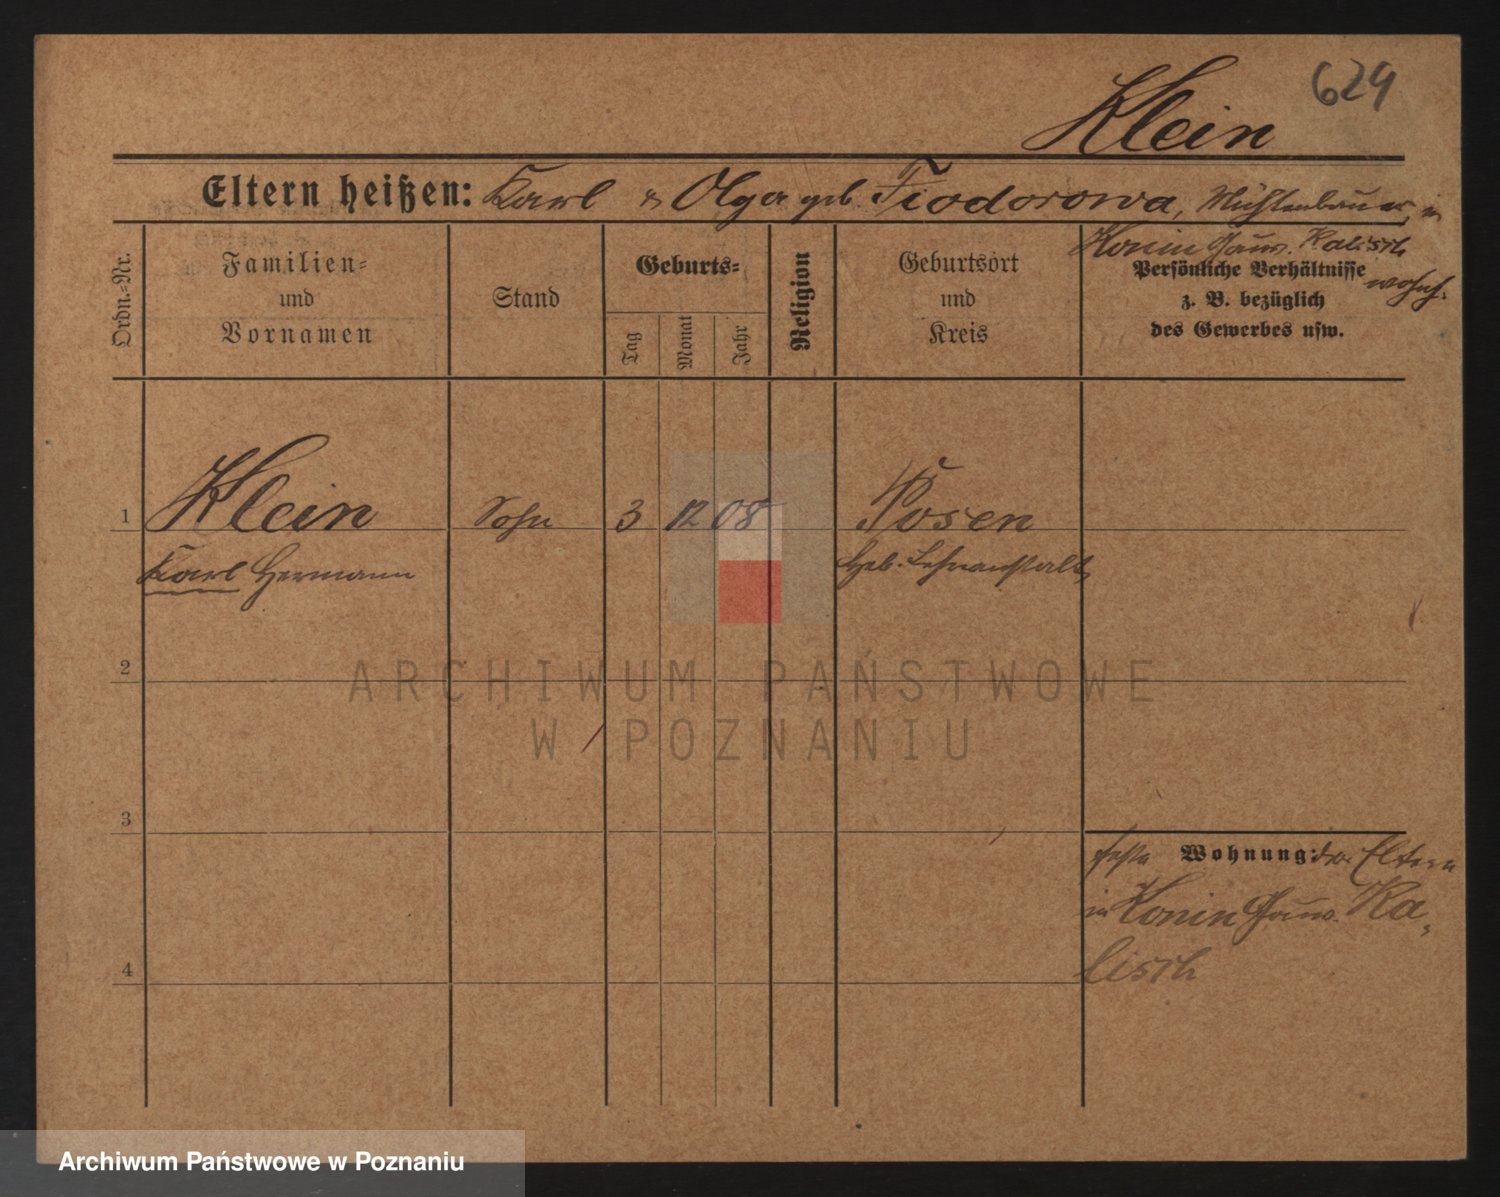 Klein 624
Eltern heißen: Karl u Olga geb. Fiodorowa, Mühlenbauer, in
Konin Gouv. Kalisch
wohnh.
Ordn.=Nr.
Familien=
und
Vornamen
Stand
Geburts=
Tag
Monat
Jahr
Religion
Geburtsort
und
Kreis
Persönliche Verhältnisse
z. B. bezüglich
des Gewerbes usw.
1 Klein Sohn 3 12 08 Posen
Karl Hermann Heb. Lehranstalt
2
ARCHIWUM PAŃSTWOWE
W POZNANIU
3
feste Wohnung: der Eltern
in Konin Gouv. Ka-
lisch
4
Archiwum Państwowe w Poznaniu